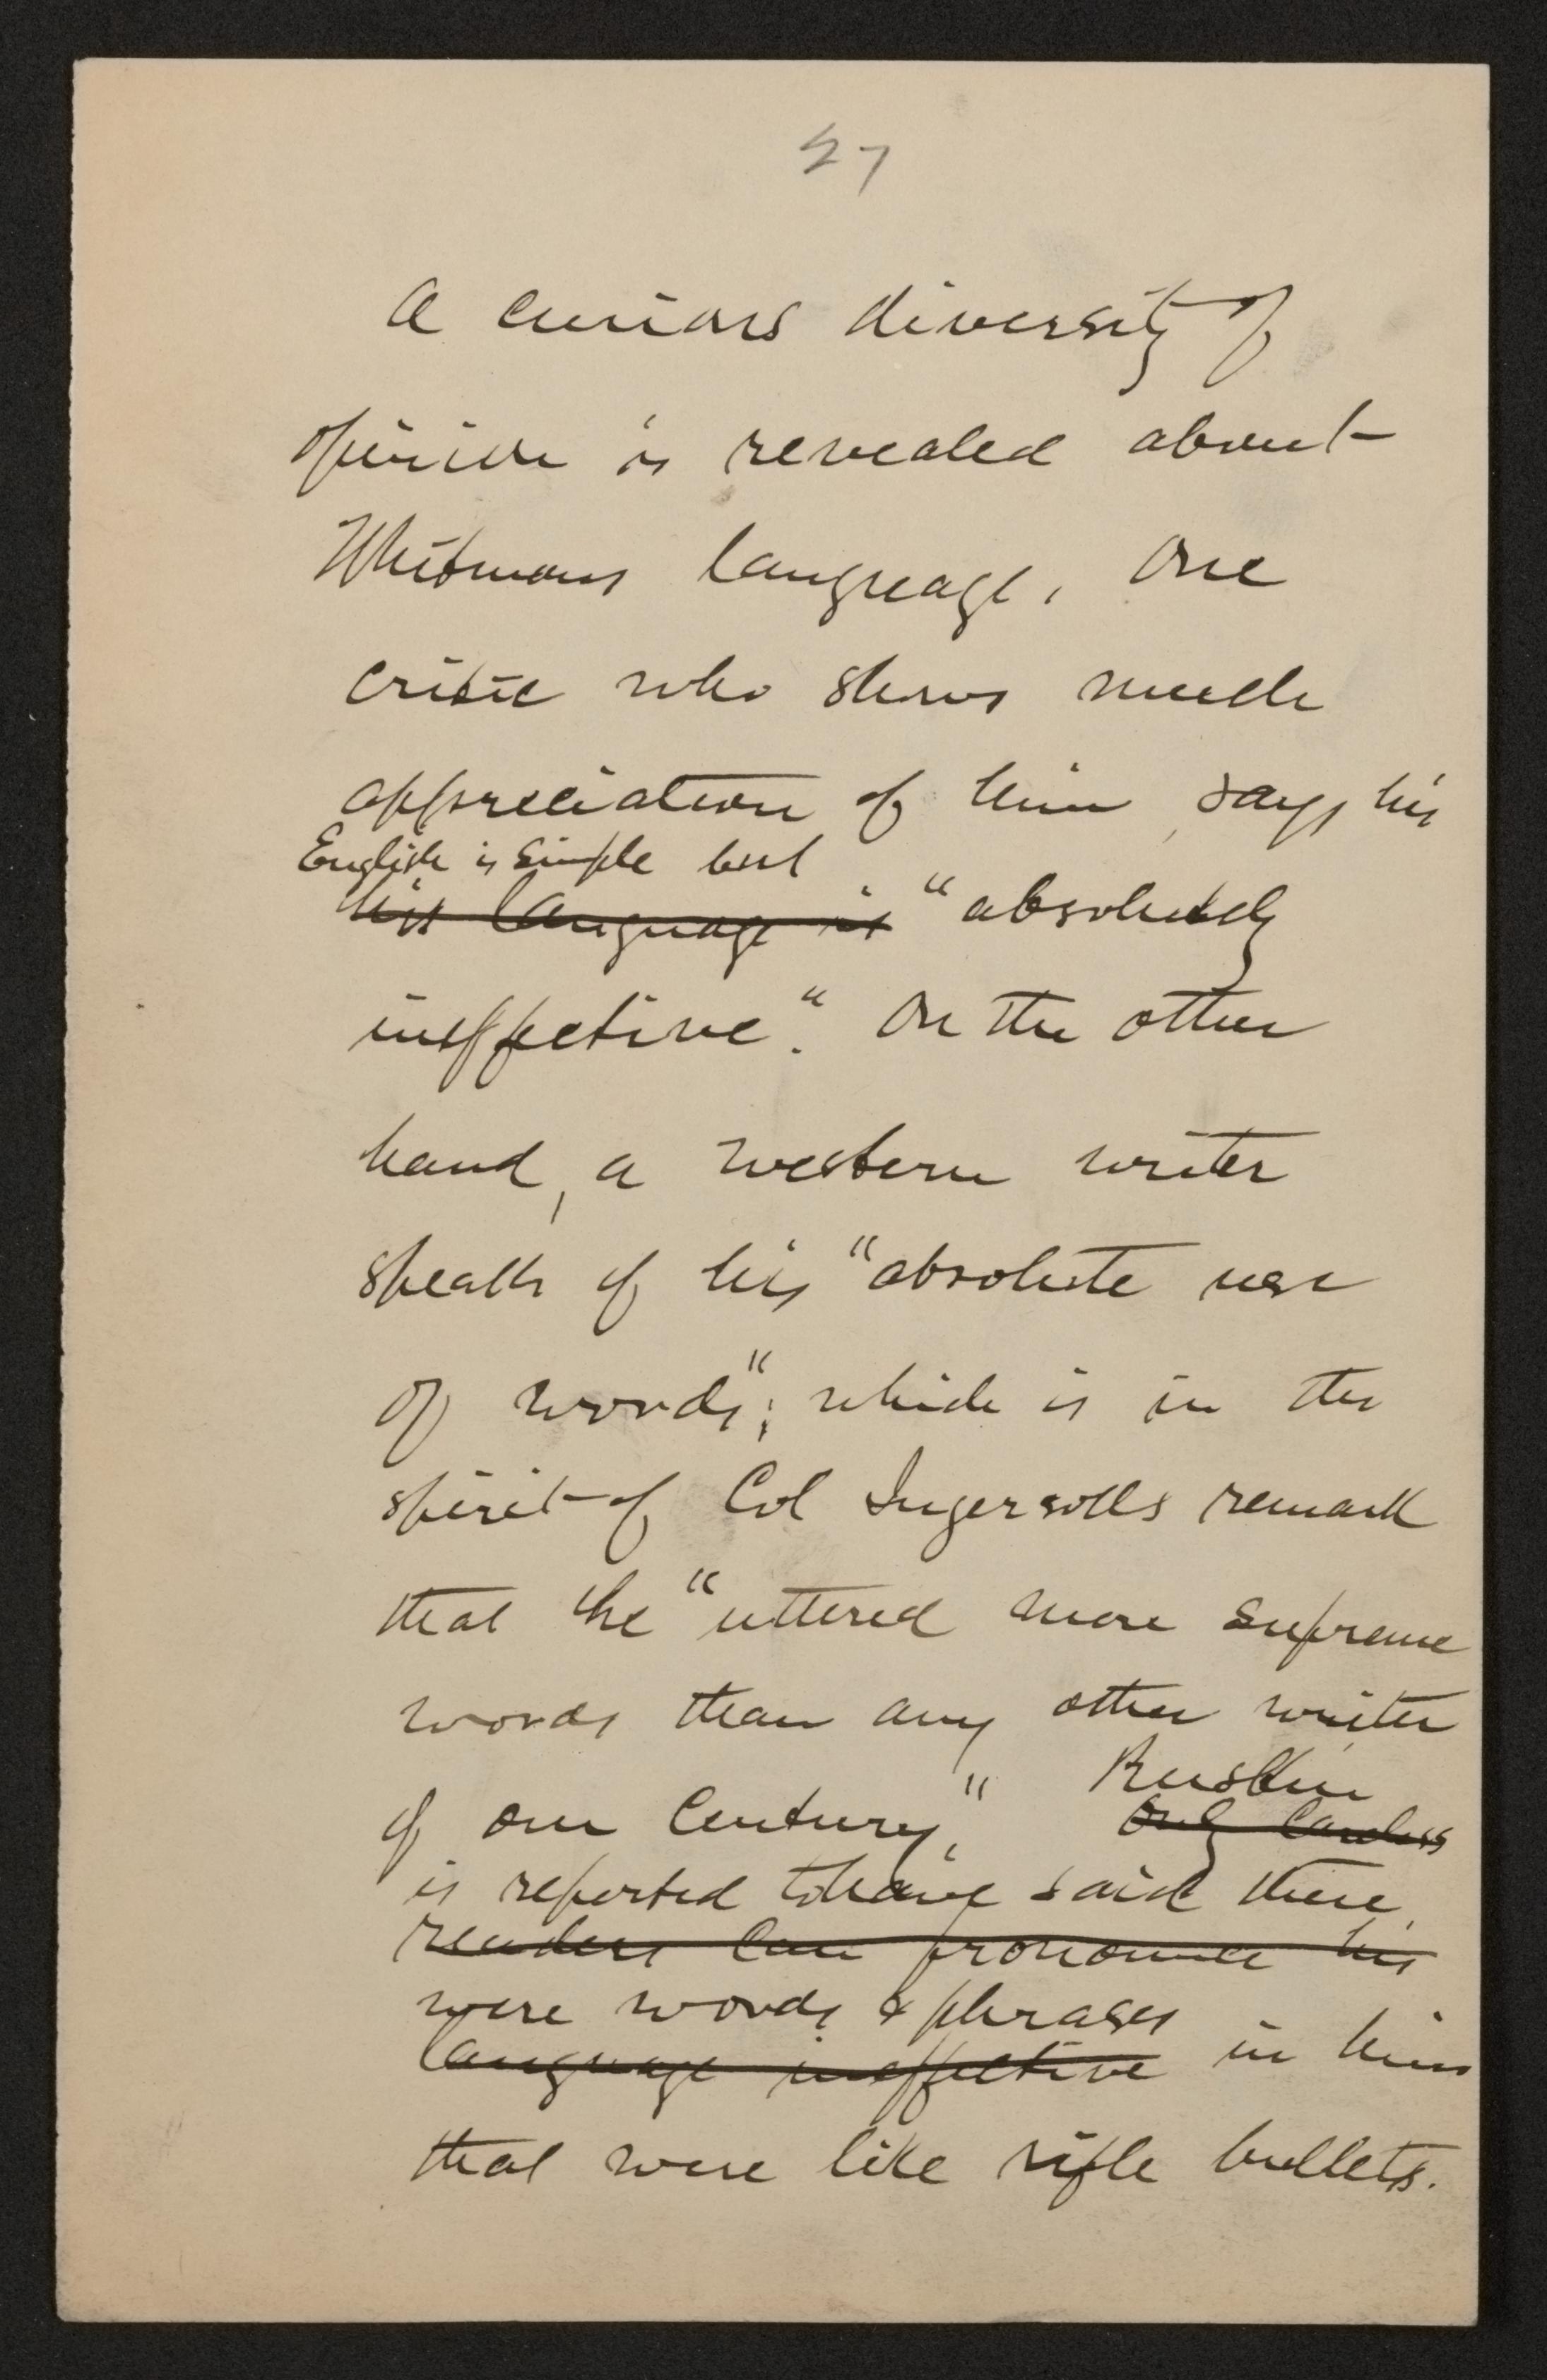 27
A curious diversity of
opinion is revealed about
Whitmans language. One
critic who shows much
appreciation of him, says his
English is simple but
his language is "absolutely
ineffective." On the other
hand, a western writer
speaks of his "absolute use
of words"; which is in the
spirit of Col Ingersolls remark
that he "uttered more supreme
words than any other writer
of our Century," Ruskin
Only careless
is reported to have said there
readers can pronounce his
were words & phrases
language ineffective in him
that were like rifle bullets.